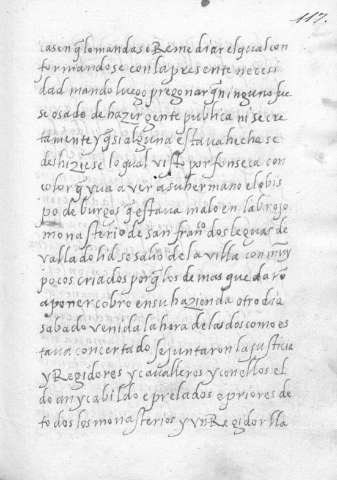 117.
cas en q̃ lo mandase Remediar el qual con
formandose con la presente necesi
dad mando luego pregonar q̃ ninguno fue
se osado de hazer gente publica ni secre
tamente y q̃ si alguna estava hecha se
deshiziese lo qual visto por fonseca con
color q̃ yva a ver a su hermano el obis
po de burgos q̃ estava malo en labrojo
monasterio de san franco dos leguas de
valladolid se salio de la villa con muy
pocos criados porq̃ los demas quedarō
a poner cobro en su hazienda otro dia
sabado venida la hora de las dos como es
tava concertado se juntaron la justicia
y Regidores y cavalleros y con ellos el
dean y cabildo e prelados e priores de
todos los monasterios y un Regidor lla